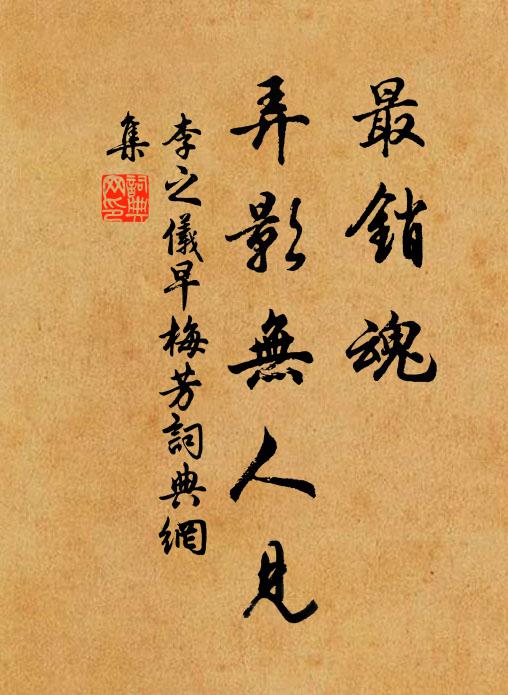 最銷魂
弄影無人見
李之儀早梅芳詞典網
集
詞典
网印